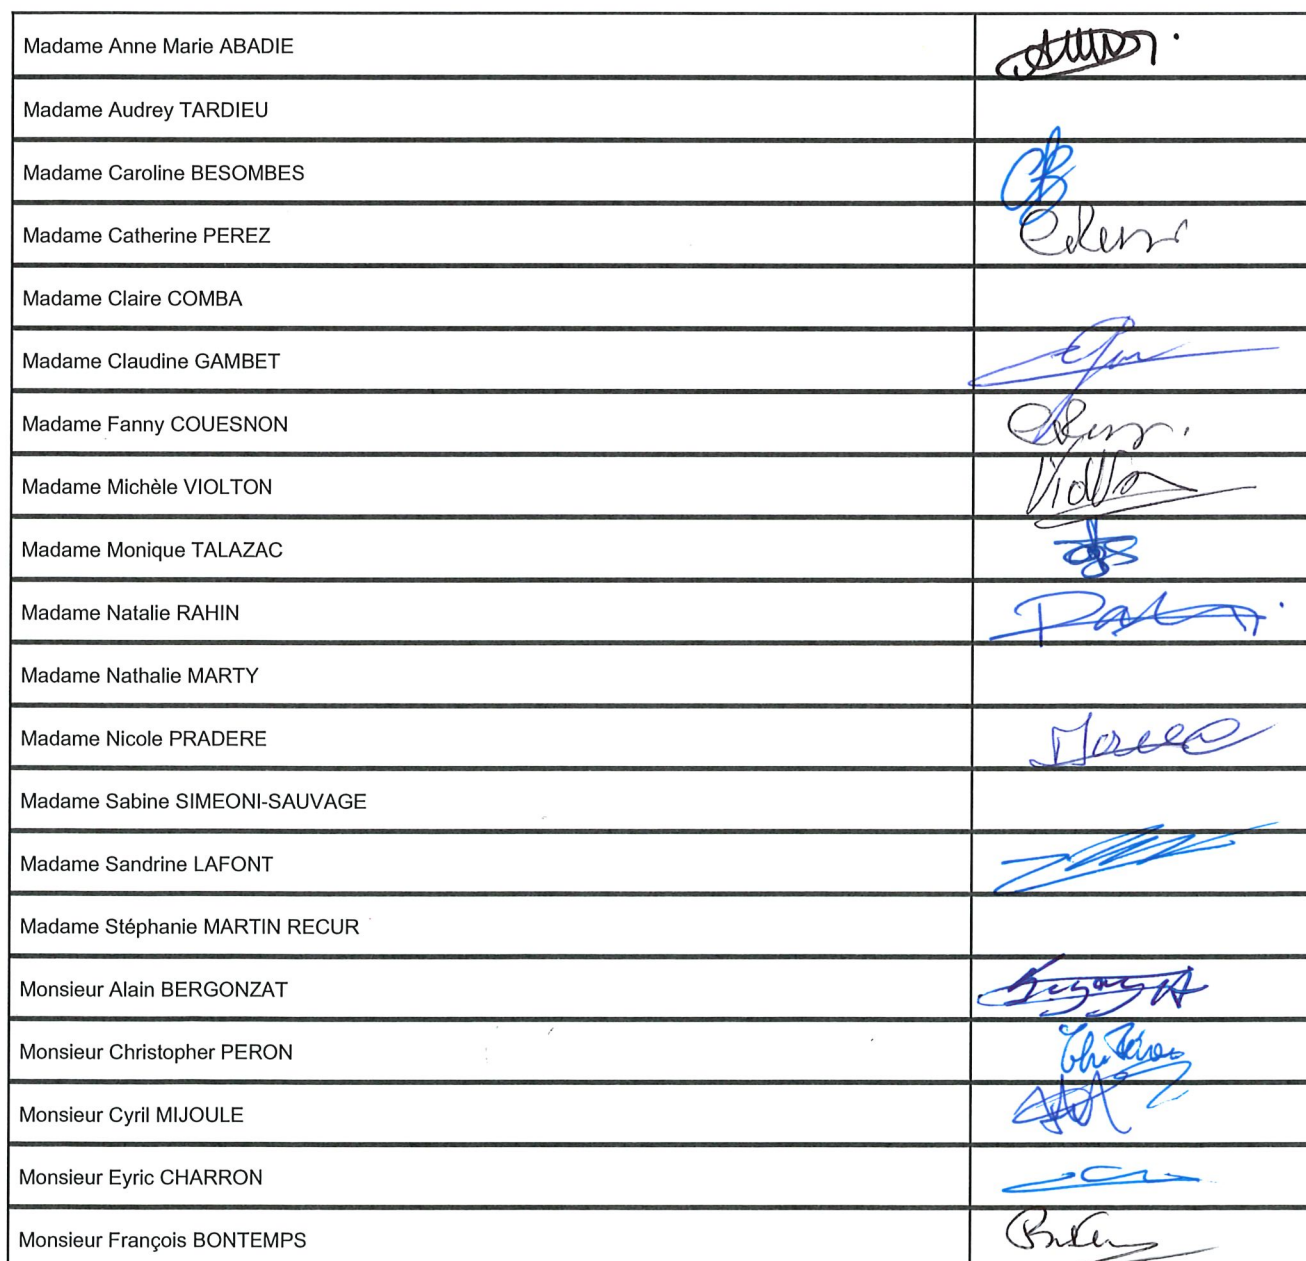 Madame Anne Marie ABADIE
Madame Audrey TARDIEU
Madame Caroline BESOMBES
Madame Catherine PEREZ
Madame Claire COMBA
Madame Claudine GAMBET
Madame Fanny COUESNON
Madame Michèle VIOLTON
Madame Monique TALAZAC
Madame Natalie RAHIN
Madame Nathalie MARTY
Madame Nicole PRADERE
Madame Sabine SIMEONI-SAUVAGE
Madame Sandrine LAFONT
Madame Stéphanie MARTIN RECUR
Monsieur Alain BERGONZAT
Monsieur Christopher PERON
Monsieur Cyril MIJOULE
Monsieur Eyric CHARRON
Monsieur François BONTEMPS